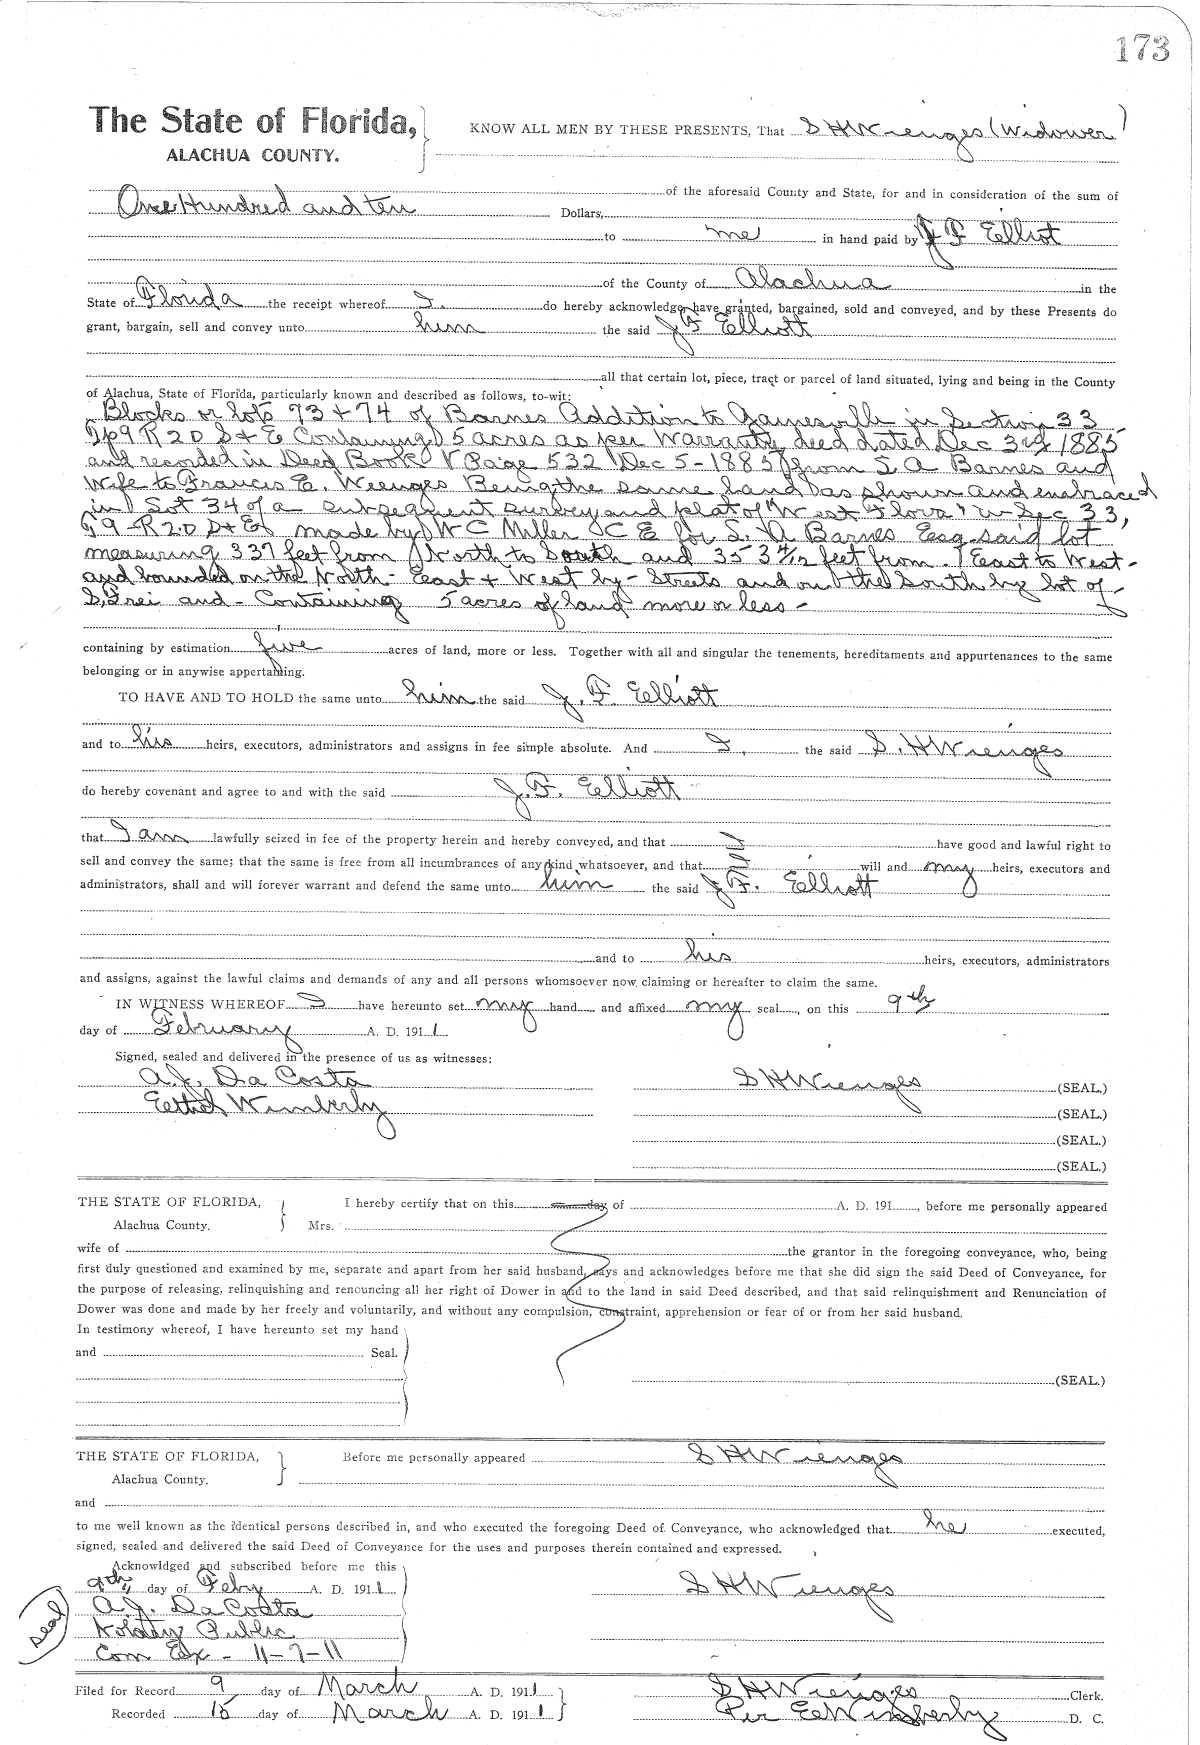 173
The State of Florida,
ALACHUA COUNTY.
KNOW ALL MEN BY THESE PRESENTS, That S H Wienges (Widower)
of the aforesaid County and State, for and in consideration of the sum of
One Hundred and ten Dollars,
to me in hand paid by J F Elliot
of the County of Alachua in the
State of Florida the receipt whereof I do hereby acknowledge, have granted, bargained, sold and conveyed, and by these Presents do
grant, bargain, sell and convey unto him the said J F Elliott
all that certain lot, piece, tract or parcel of land situated, lying and being in the County
of Alachua, State of Florida, particularly known and described as follows, to-wit:
Blocks or lots 73 + 74 of Barnes Addition to Gainesville in Section 33
Tp 9 R 20 S + E Containing 5 acres as per Warranty deed dated Dec 3rd 1885
and recorded in Deed Book V Paige 532 Dec 5 - 1885 from S. A Barnes and
Wife to Francis E. Wienges Being the same land as shown and embraced
in Lot 34 of a subsequent survey and plat of "West Flora" in Sec 33,
T 9 - R 20 S + E made by W C Miller C E for S. A Barnes Esq said lot
measuring 337 feet from North to South and 353 4/12 feet from East to West -
and bounded on the North - East + West by - Streets and on the South by lot of -
S. Frei and - Containing 5 acres of land more or less -
containing by estimation five acres of land, more or less. Together with all and singular the tenements, hereditaments and appurtenances to the same
belonging or in anywise appertaining.
TO HAVE AND TO HOLD the same unto him the said J. F. Elliott
and to his heirs, executors, administrators and assigns in fee simple absolute. And I, the said S. H Wienges
do hereby covenant and agree to and with the said J. F. Elliott
that I am lawfully seized in fee of the property herein and hereby conveyed, and that I have good and lawful right to
sell and convey the same; that the same is free from all incumbrances of any kind whatsoever, and that I will and my heirs, executors and
administrators, shall and will forever warrant and defend the same unto him the said J F. Elliott
and to his heirs, executors, administrators
and assigns, against the lawful claims and demands of any and all persons whomsoever now claiming or hereafter to claim the same.
IN WITNESS WHEREOF I have hereunto set my hand and affixed my seal, on this 9th
day of February A. D. 1911
Signed, sealed and delivered in the presence of us as witnesses:
A. J. Da Costa S H Wienges (SEAL.)
Wimberly (SEAL.)
(SEAL.)
(SEAL.)
THE STATE OF FLORIDA, I hereby certify that on this day of A. D. 191, before me personally appeared
Alachua County. Mrs.
wife of the grantor in the foregoing conveyance, who, being
first duly questioned and examined by me, separate and apart from her said husband, says and acknowledges before me that she did sign the said Deed of Conveyance, for
the purpose of releasing, relinquishing and renouncing all her right of Dower in and to the land in said Deed described, and that said relinquishment and Renunciation of
Dower was done and made by her freely and voluntarily, and without any compulsion, constraint, apprehension or fear of or from her said husband.
In testimony whereof, I have hereunto set my hand
and Seal.
(SEAL.)
THE STATE OF FLORIDA, Before me personally appeared S H Wienges
Alachua County.
and
to me well known as the identical persons described in, and who executed the foregoing Deed of Conveyance, who acknowledged that he executed,
signed, sealed and delivered the said Deed of Conveyance for the uses and purposes therein contained and expressed.
Acknowldged and subscribed before me this
9th day of Feby A. D. 1911 S H Wienges
A. J. Da Costa
Notary Public
Com Ex - 11-7-11
Seal
Filed for Record 9 day of March A. D. 1911 S H Wienges Clerk.
Recorded 15 day of March A. D. 1911 Per E E Wimberly D. C.